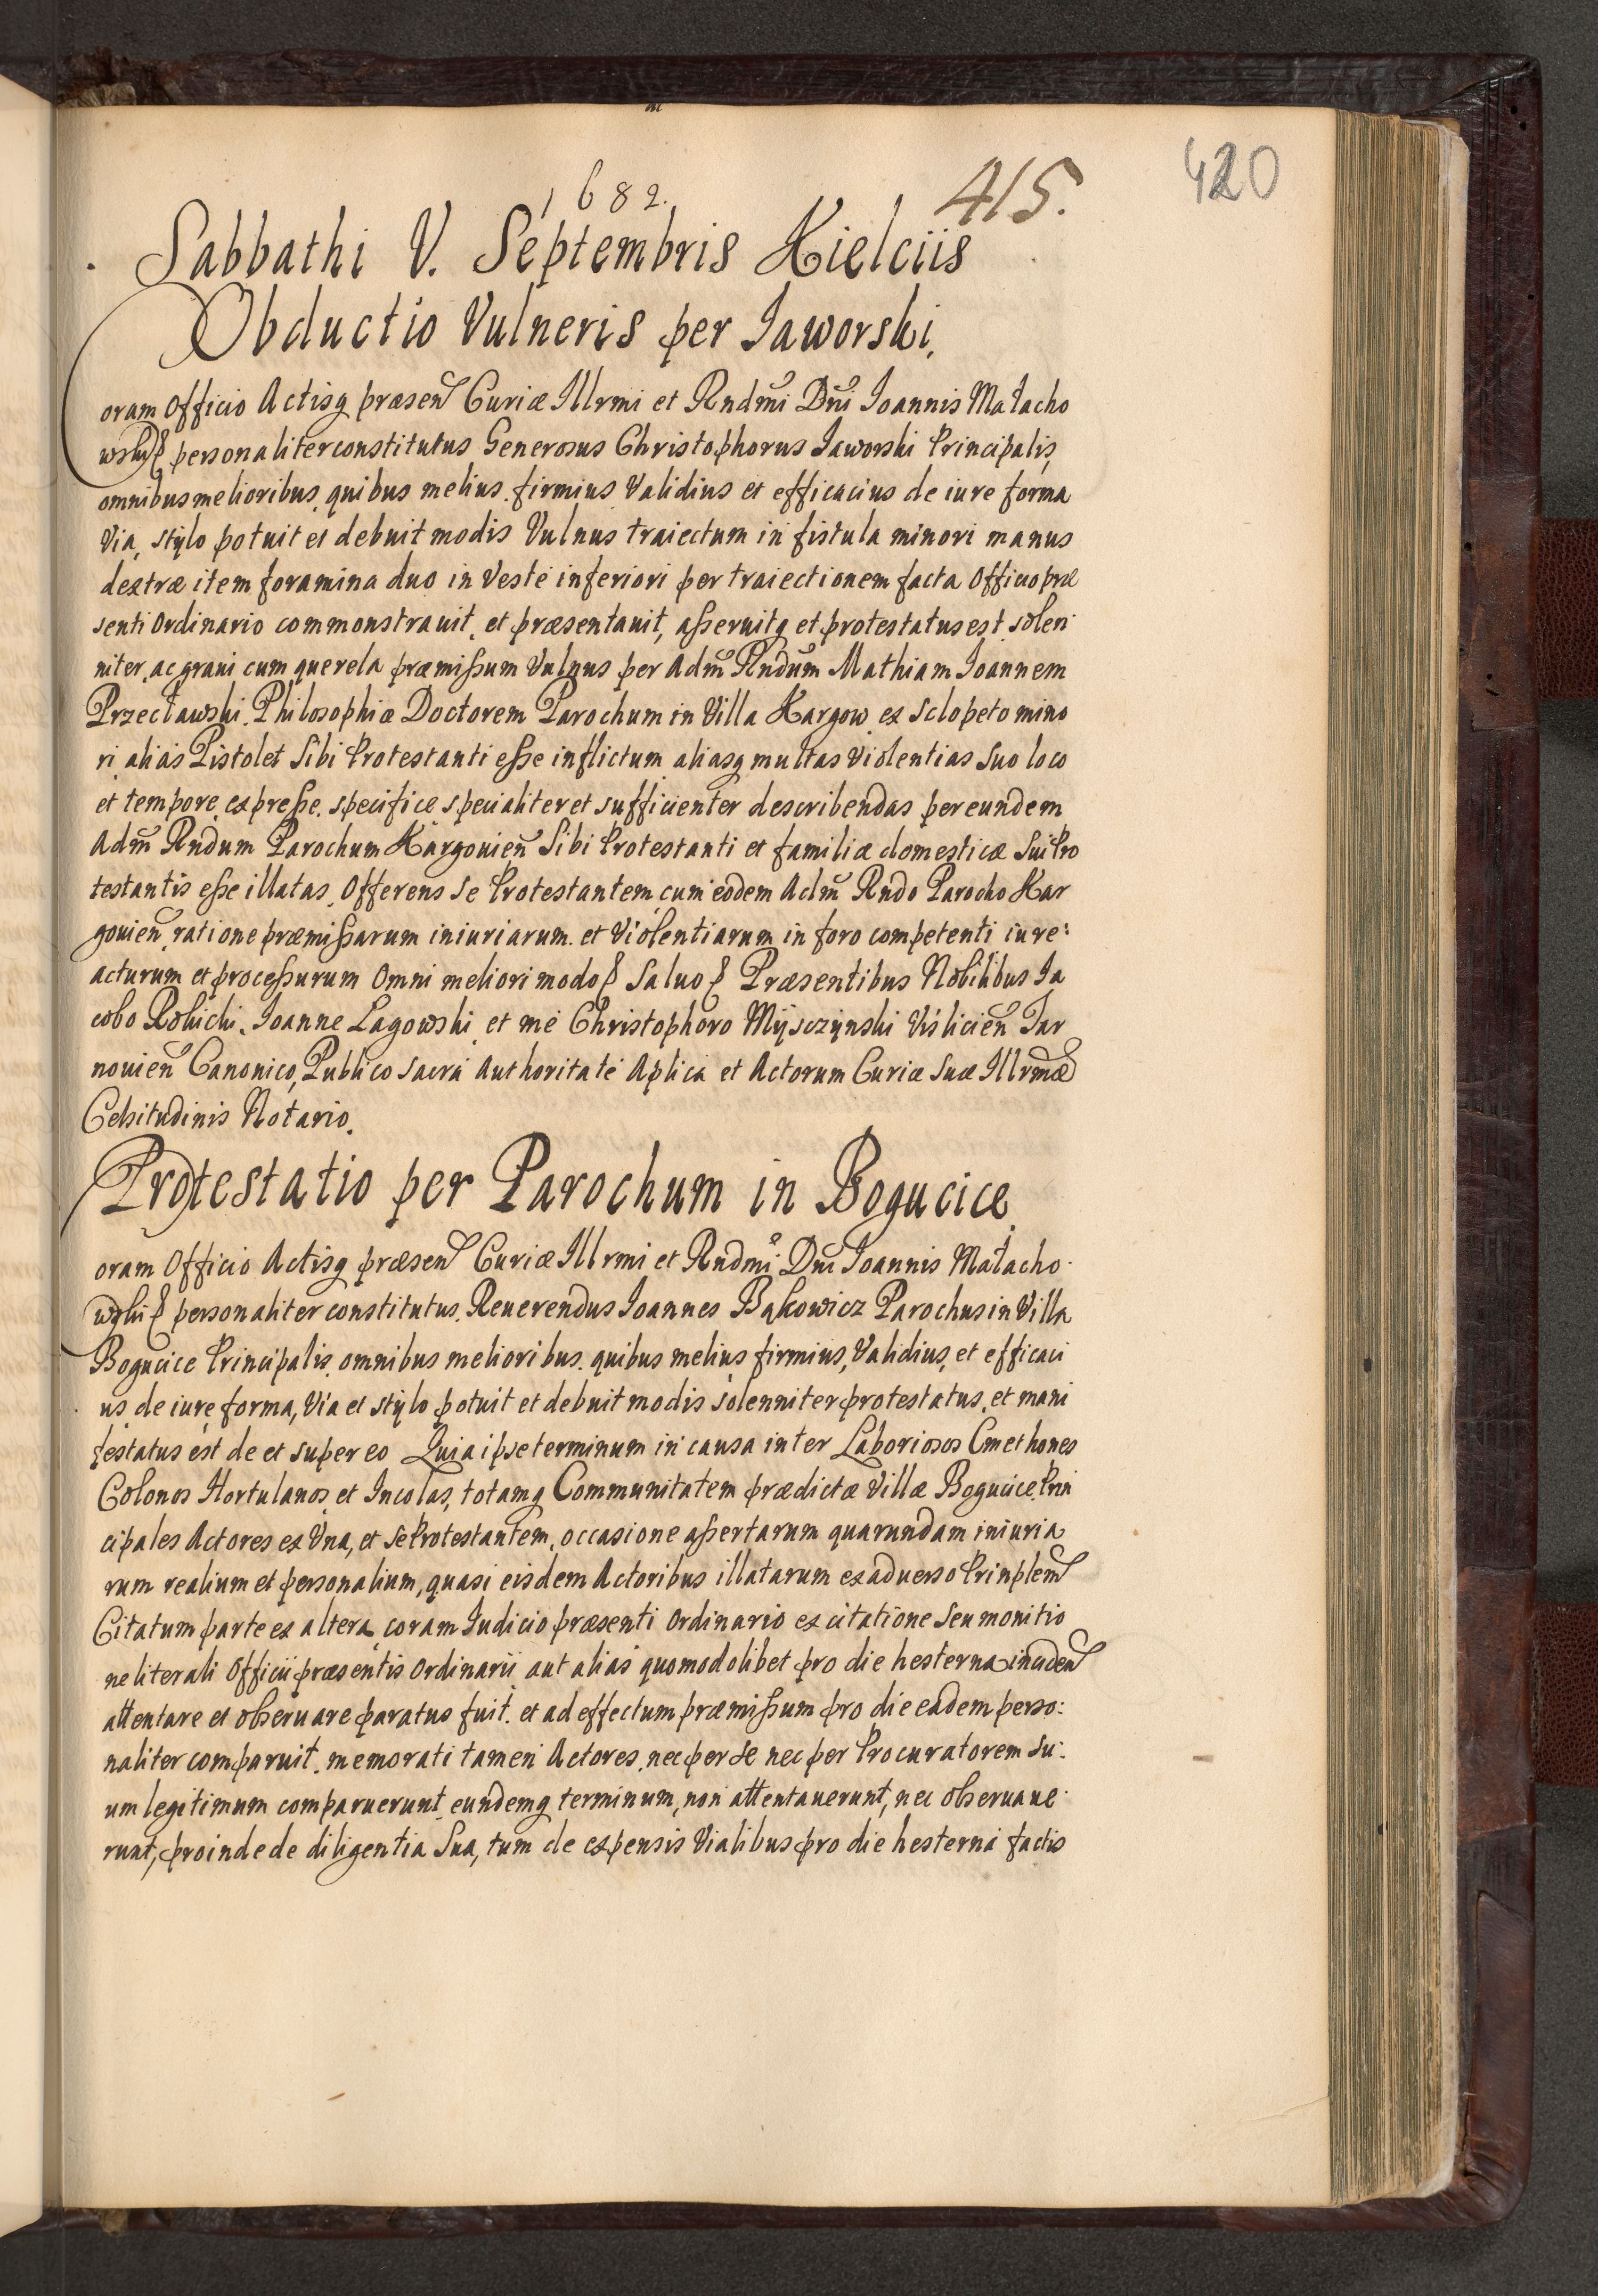 420
1682.
415.
Sabbathi V. Septembris Kielciis
Obductio Vulneris per Jaworski.
Coram Officio Actisq præsen Curiæ Illrmi et Rndmi Dni Joannis Małacho
wski personaliter constitutus Generosus Christophorus Jaworski Principalis,
omnibus melioribus, quibus melius, firmius Validius et efficacius de iure forma
Via, stylo potuit et debuit modis Vulnus traiectum in fistula minori manus
dextræ item foramina duo in Veste inferiori per traiectionem facta Officio præ
senti Ordinario commonstrauit, et præsentauit, asseruitq et protestatus est solen
niter, ac graui cum querela præmissum Vulnus per Adm Rndum Mathiam Joannem
Przecławski Philosophiæ Doctorem Parochum in Villa Kargow ex sclopeto mino
ri alias Pistolet Sibi Protestanti esse inflictum aliasq multas Violentias suo loco
et tempore, expresse, specifice specialiter et sufficienter describendas per eundem
Adm Rndum Parochum Kargouien Sibi Protestanti et familiæ domesticæ Sui Pro
testantis esse illatas, Offerens se Protestantem cum eodem Adm Rndo Parocho Kar
gouien ratione præmissarum iniuriarum et Violentiarum in foro competenti iure:
acturum et processurum Omni meliori modo Saluo Præsentibus Nobilibus Ja
cobo Robicki, Joanne Lagowski et me Christophoro Myszczynski Visliцien Tar
nouien Canonico, Publico Sacra Authoritate Aplica et Actorum Curiæ Suæ Illrmæ
Celsitudinis Notario.
Protestatio per Parochum in Bogucice
Coram Officio Actisq præsen Curiæ Illrmi et Rndmi Dni Joannis Małacho
wski personaliter constitutus Reuerendus Joannes Bąkowicz Parochus in Villa
Bogucice Principalis, omnibus melioribus, quibus melius firmius, Validius, et efficaci
us de iure, forma, Via et stylo potuit et debuit modis solenniter protestatus, et mani
festatus est de et super eo Quia ipse terminum in causa inter Laboriosos Cmethones
Colonos Hortulanos et Incolas, totamq Communitatem prædictæ Villæ Bogucice Prin
cipales Actores ex Vna, et se Protestantem, occasione assertarum quarundam iniuria
rum realium et personalium, quasi eisdem Actoribus illatarum ex aduerso Prinplem
Citatum parte ex altera coram Iudicio præsenti Ordinario ex citatione Seu monitio
ne literali Officii præsentis Ordinarii aut alias quomodolibet pro die hesterna inciden
attentare et obseruare paratus fuit, et ad effectum præmissum pro die eadem perso:
naliter comparuit, memorati tamen Actores, nec per se nec per Procuratorem su:
um legitimum comparuerunt, eundemq terminum, non attentauerunt, nec obseruaue
runt, proinde de diligentia Sua, tum de expensis Vialibus pro die hesterna factis